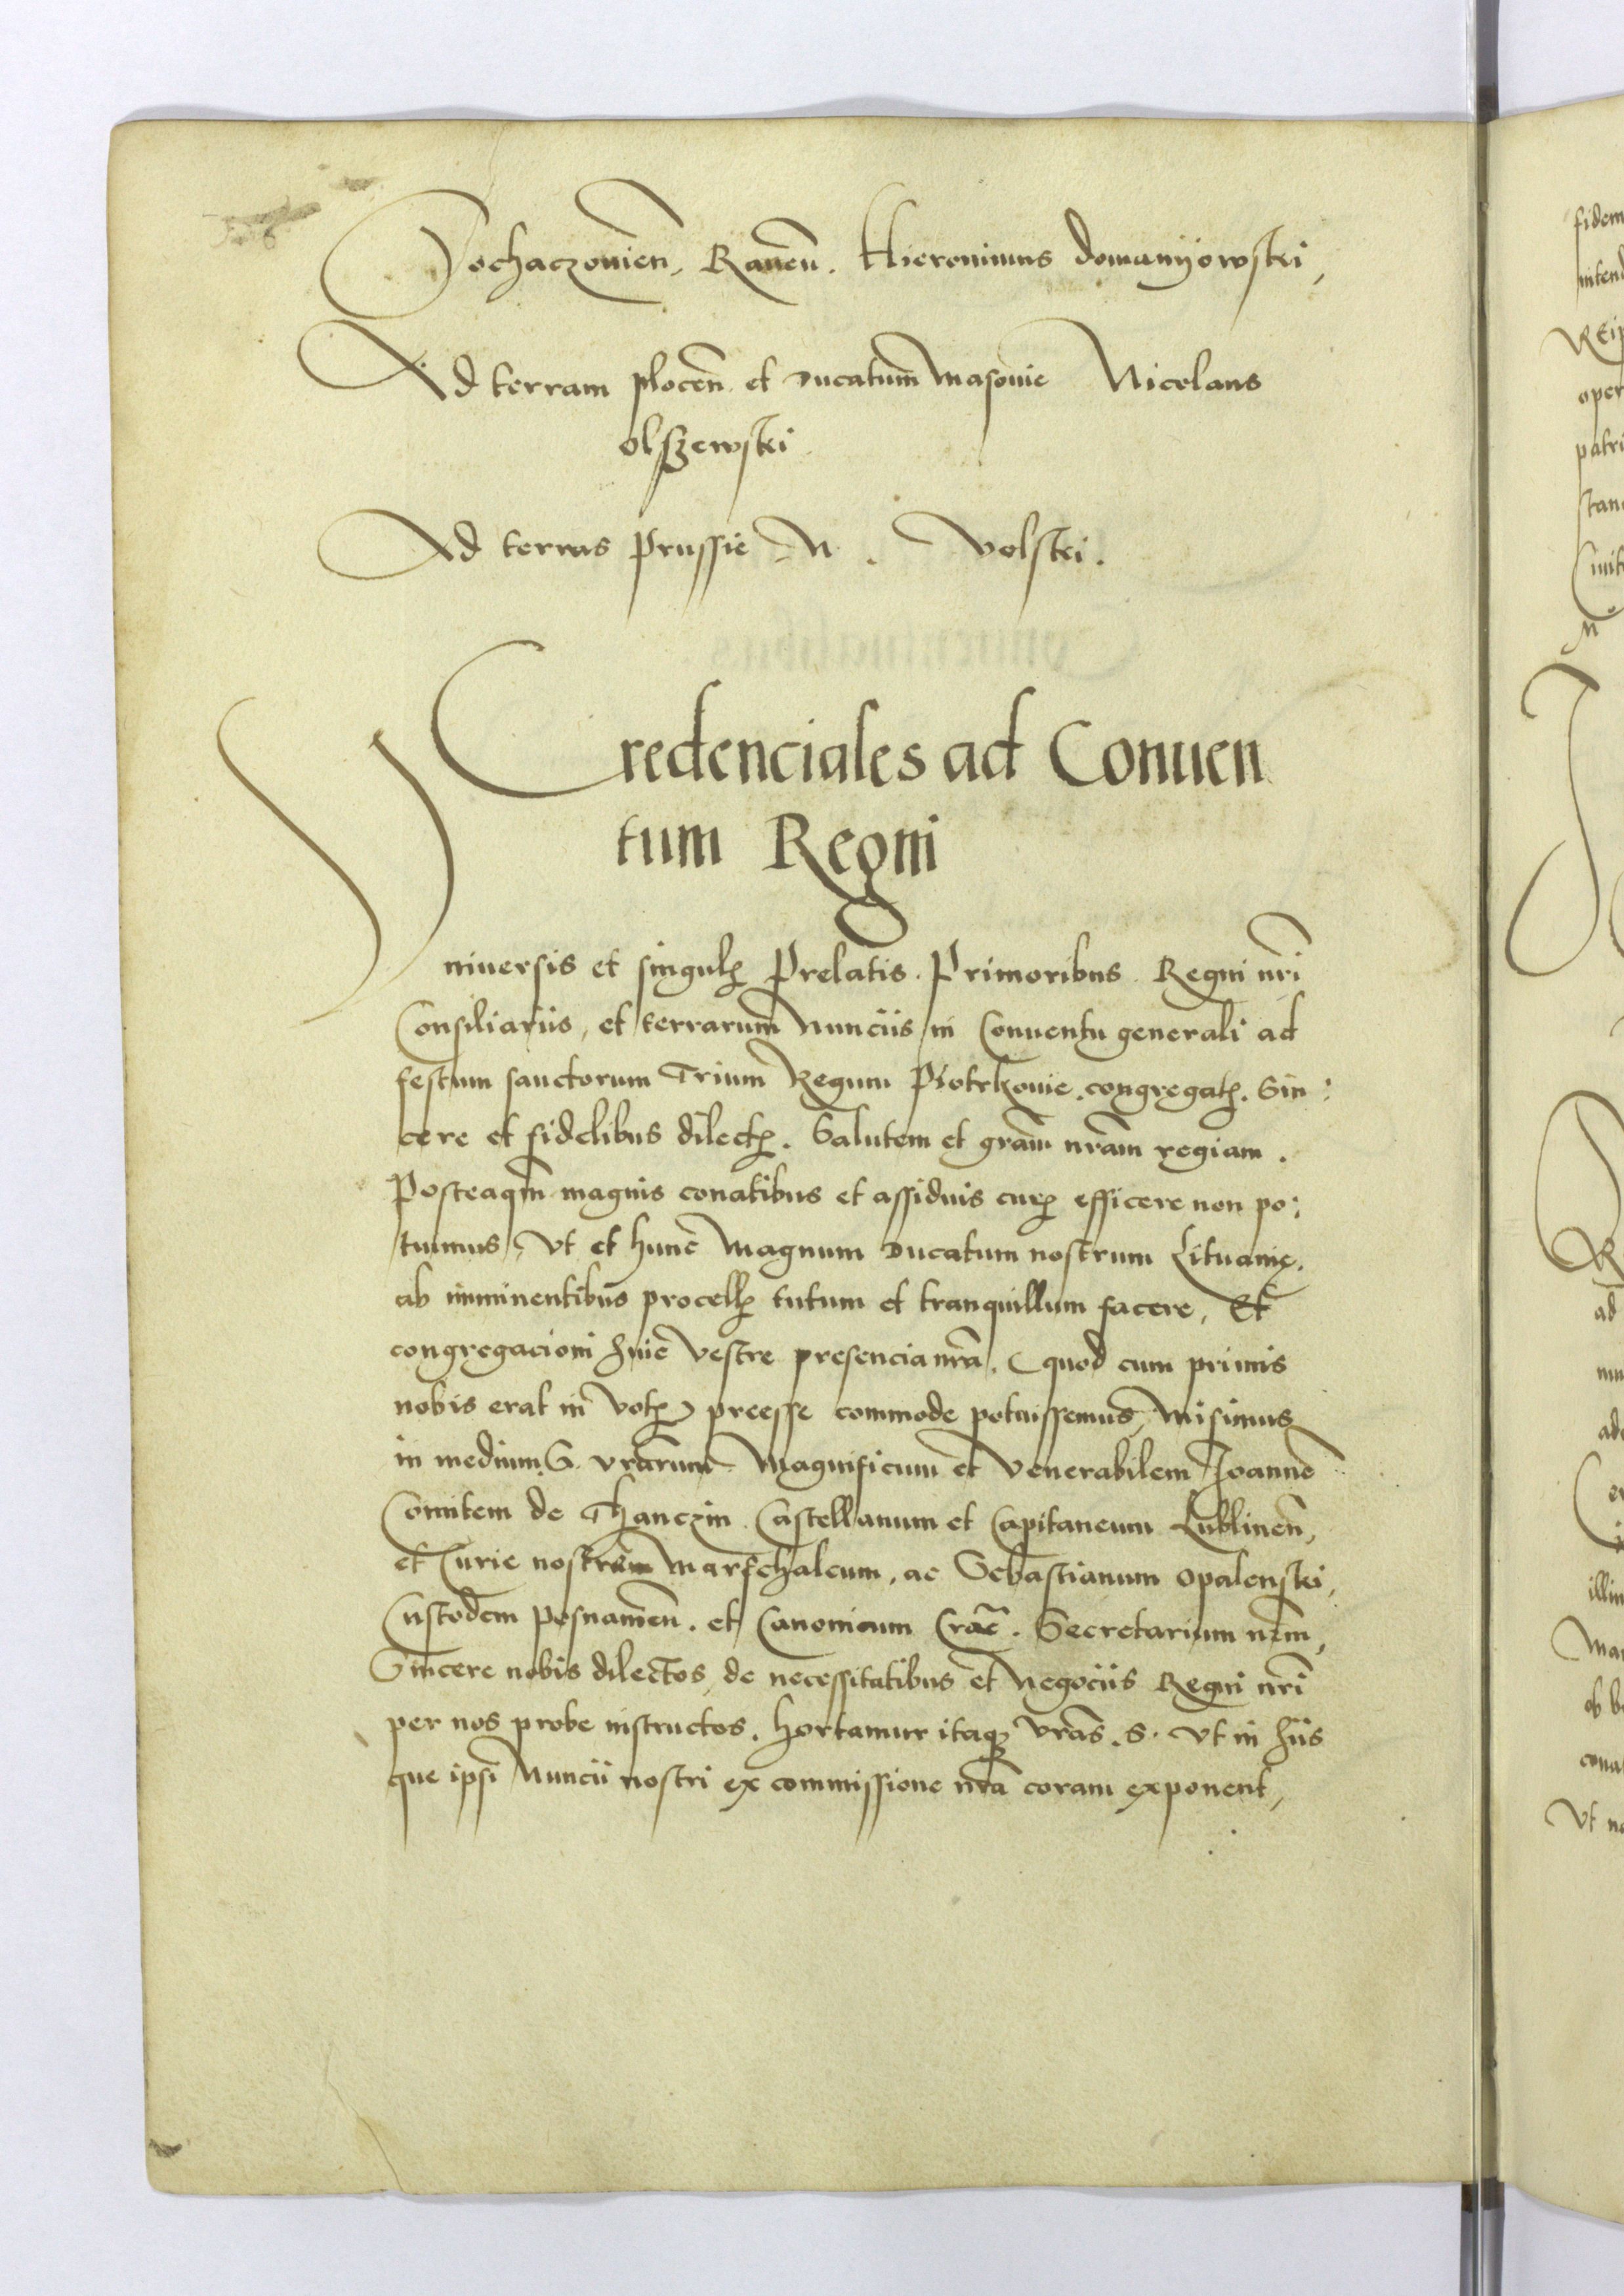 Sochaczouien̄, Rauen̄. Hieronimus domanijowski,
Ad terram plocen̄ et Ducatum Masouie Nicolaus
olszewski
Ad terras Prussie N. Volski.
Credenciales ad Conuen
tum Regni
Vniuersis et singulꝭ Prelatis. Primoribus Regni nr̄i
Consiliariis, et terrarum Nunciis in Conuentu generali ad
festum sanctorum Trium Regum Piotrkouie congregatꝭ. Sin:
cere et fidelibus dilectꝭ. Salutem et gram̄ nram̄ regiam.
Posteaqm̄ magnis conatibus et assiduis curꝭ efficere non po:
tuimus, Vt et hunc Magnum Ducatum nostrum Lituanię.
ab imminentibus procellꝭ tutum et tranquillum facere, Et
congregacioni huic Vestre presencia nrā. (quod cum primis
nobis erat in Votꝭ) preesse commode potuissemus, Misimus
in medium S. vrarum̄ Magnificum et Venerabilem Joannē
Comitem de Thanczin Castellanum et Capitaneum Lublinen̄,
et Curie nostre Marschalcum, ac Sebastianum opalenski,
Custodem posnanien̄. et Canonicum Crac̄. Secretarium nrm̄,
Sincere nobis dilectos, de necessitatibus et Negociis Regni nr̄i
per nos probe instructos. Hortamur itaqꝫ vras̄. S. Vt in hiis
que ipsi Nuncii nostri ex commissione nrā coram exponent,